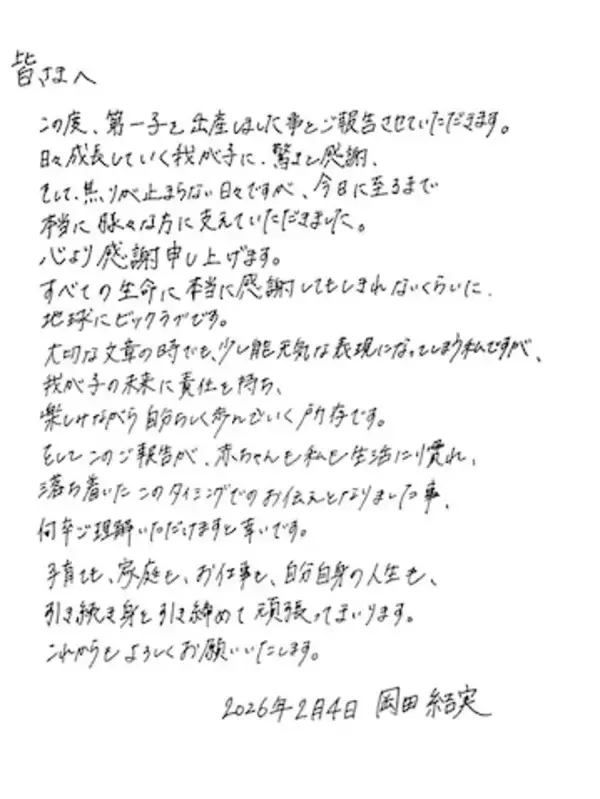 皆さまへ
この度、第一子を出産しました事をご報告させていただきます。
日々成長していく我が子に、驚きと感謝、
そして、焦りが止まらない日々ですが、今日に至るまで
本当に様々な方に支えていただきました。
心より感謝申し上げます。
すべての生命に本当に感謝してもしきれないくらいに、
地球にビックラブです。
大切な文章の時でも、少し能天気な表現になってしまう私ですが、
我が子の未来に責任を持ち、
楽しみながら自分らしく歩んでいく所存です。
そしてこのご報告が、赤ちゃんも私も生活に慣れ、
落ち着いたこのタイミングでのお伝えとなりました事、
何卒ご理解いただけますと幸いです。
子育ても、家庭も、お仕事も、自分自身の人生も、
引き続き身を引き締めて頑張ってまいります。
これからもよろしくお願いいたします。
2026年2月4日 岡田結実